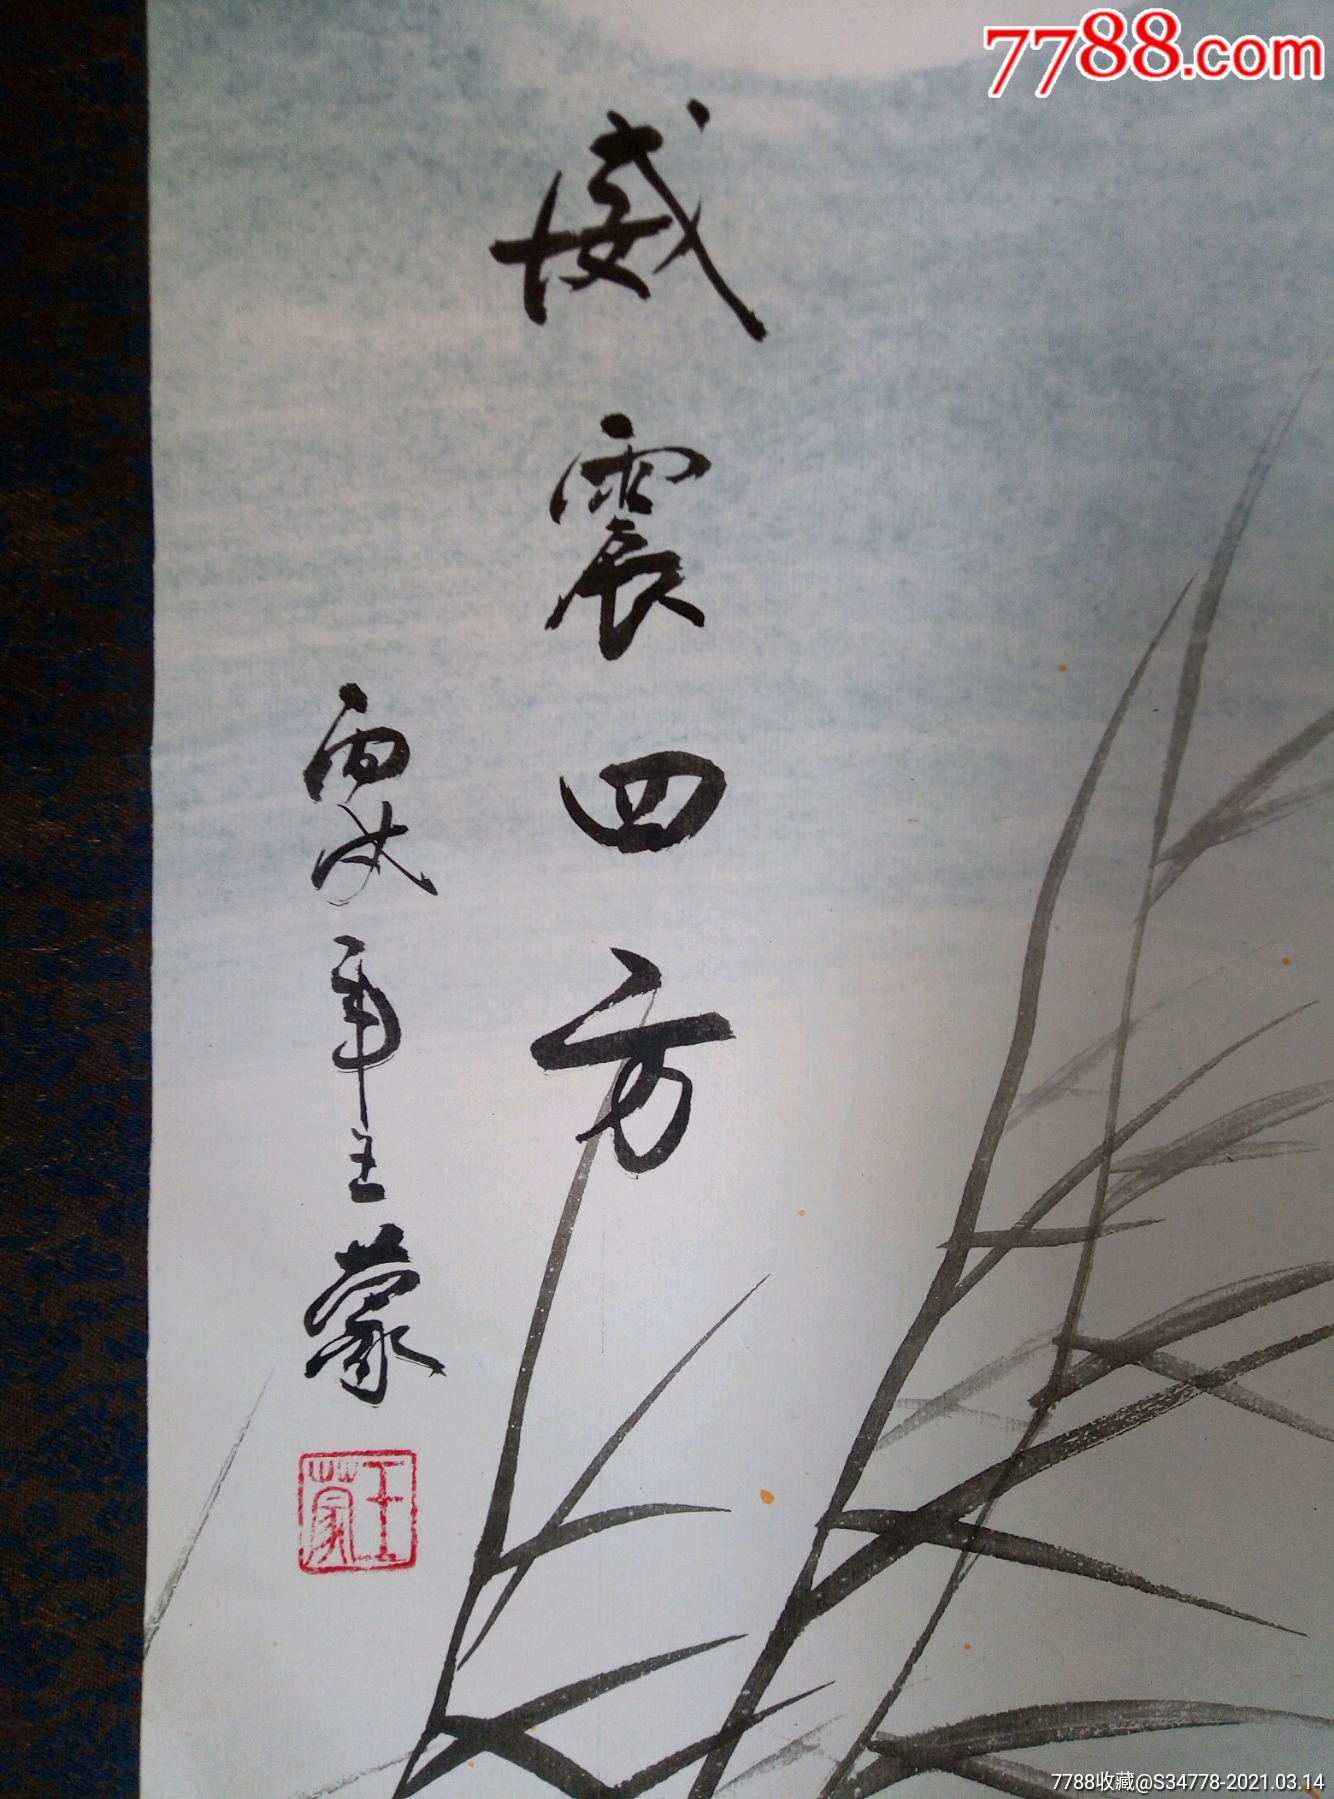 7788.com
威震四方
丙戌年王蒙
王蒙
7788收藏@S34778-2021.03.14